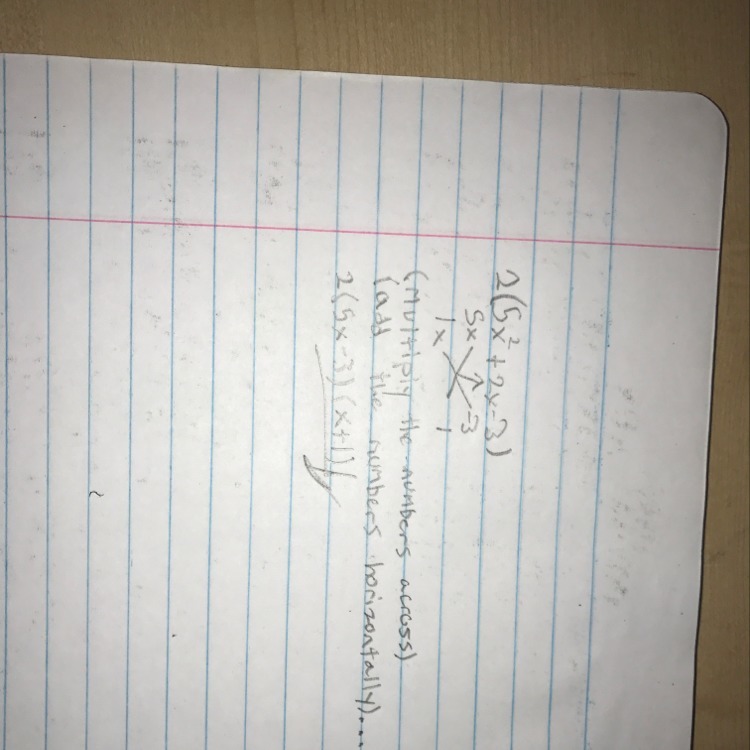 2(5x²+2x-3)
5x -3
1x 1
(Multiply the numbers across)
(add the numbers horizontally)...
2(5x-3)(x+1)